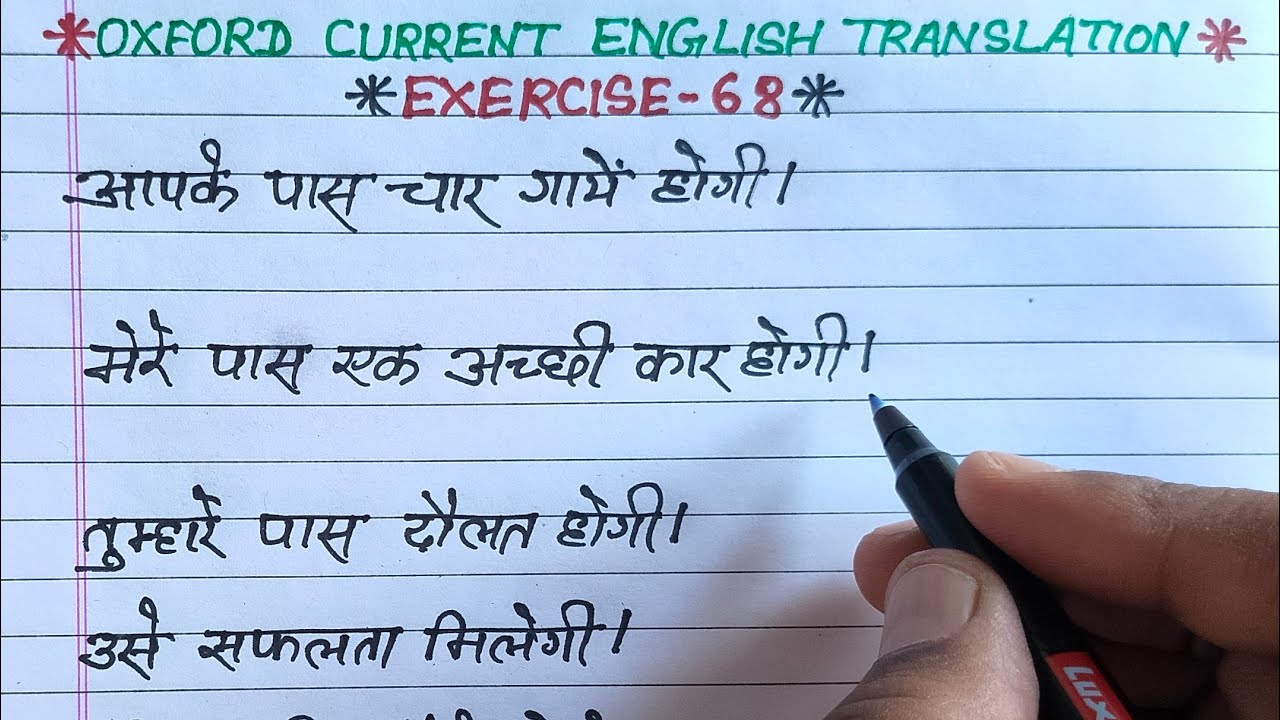 *OXFORD CURRENT ENGLISH TRANSLATION*
*EXERCISE-68*
आपके पास चार गायें होगी।
मेरे पास एक अच्छी कार होगी।
तुम्हारे पास दौलत होगी।
उसे सफलता मिलेगी।
LUX